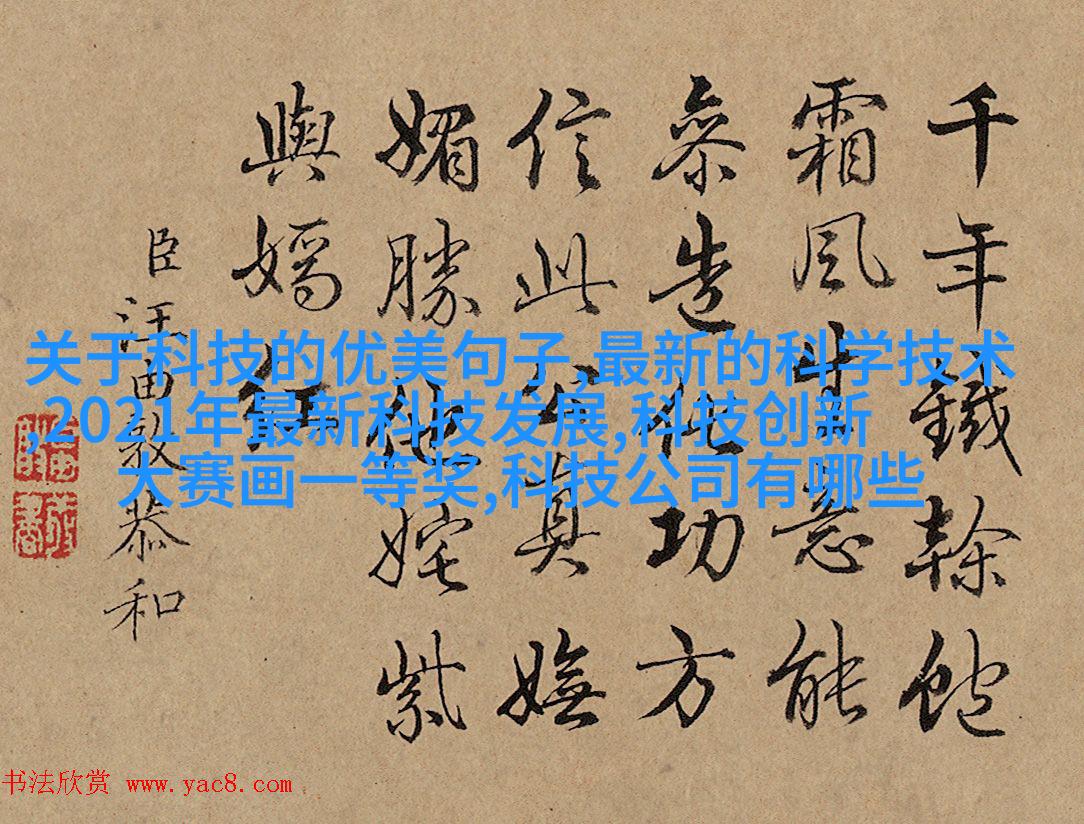 千年鐵榦飽
霜風生意能
參造化功方
信此公真嫵
媚勝他姹紫
與嫣紅
臣汪由敦恭和
关于科技的优美句子,最新的科学技术
,2021年最新科技发展,科技创新
大赛画一等奖,科技公司有哪些
书法欣赏 www.yac8.com